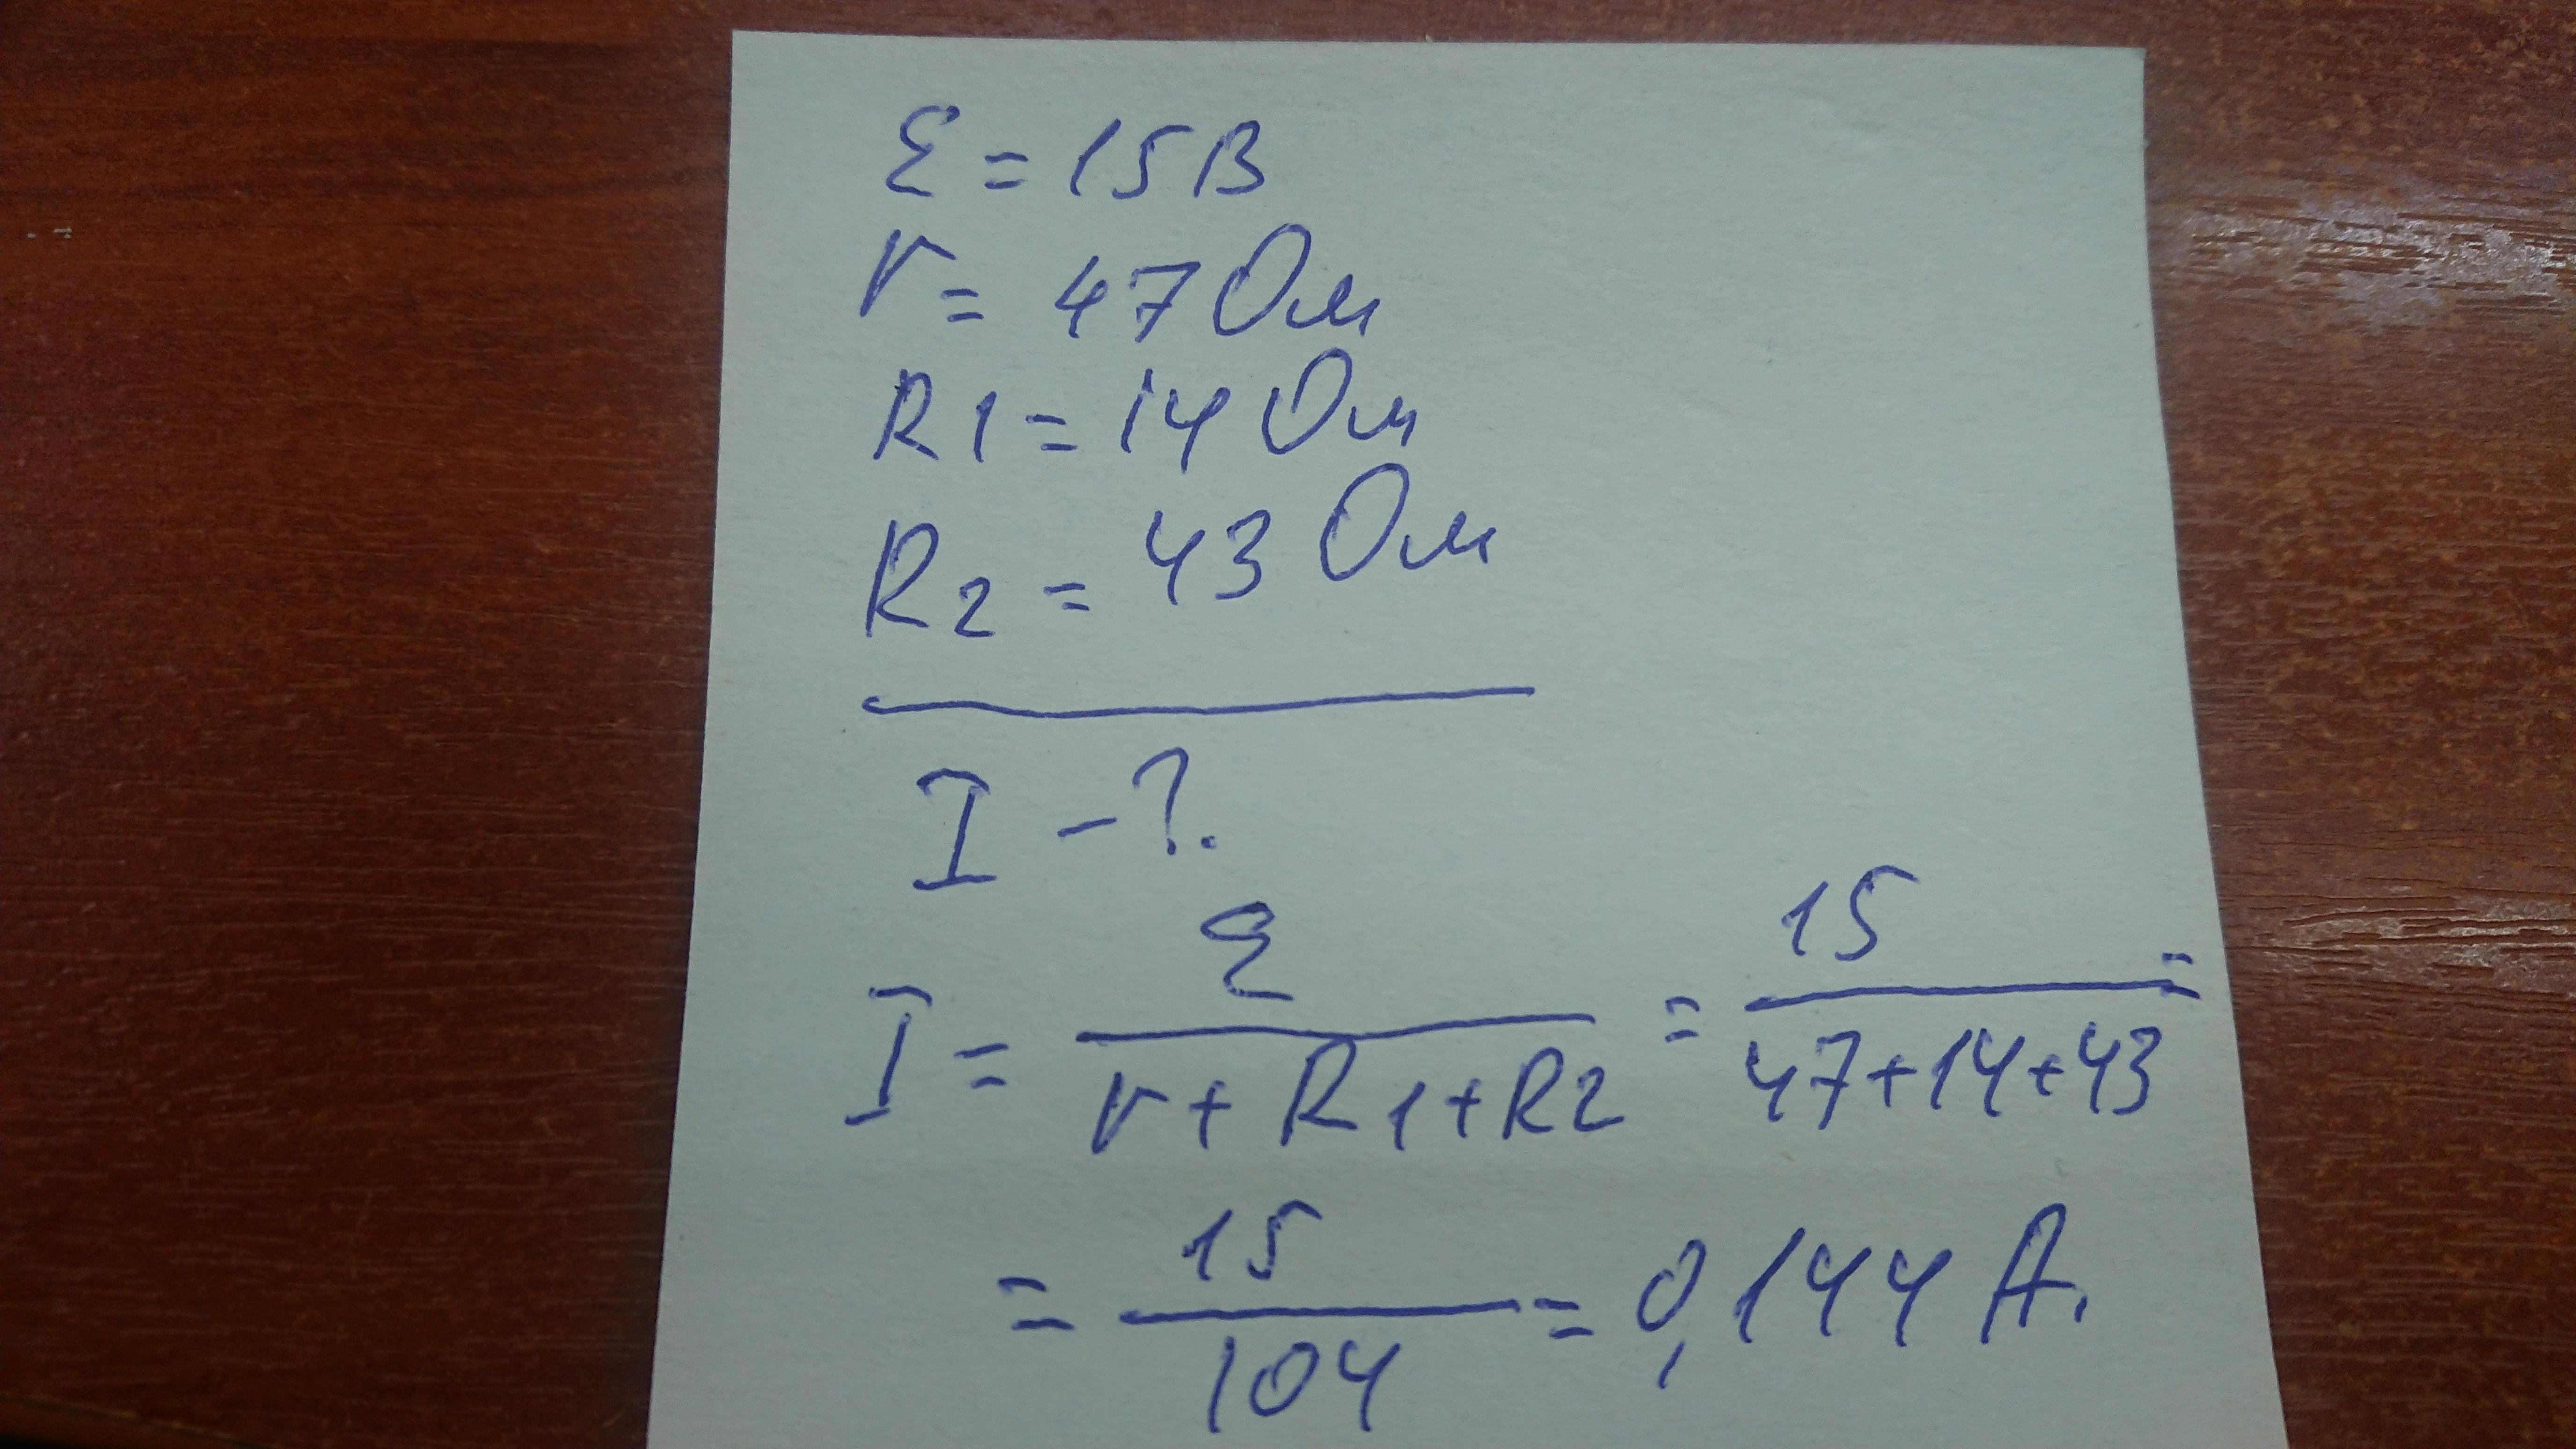 ε = 15 В
r = 47 Ом
R1 = 14 Ом
R2 = 43 Ом
I - ?.
I = ε / r + R1 + R2 = 15 / 47+14+43 =
= 15 / 104 = 0,144 А.